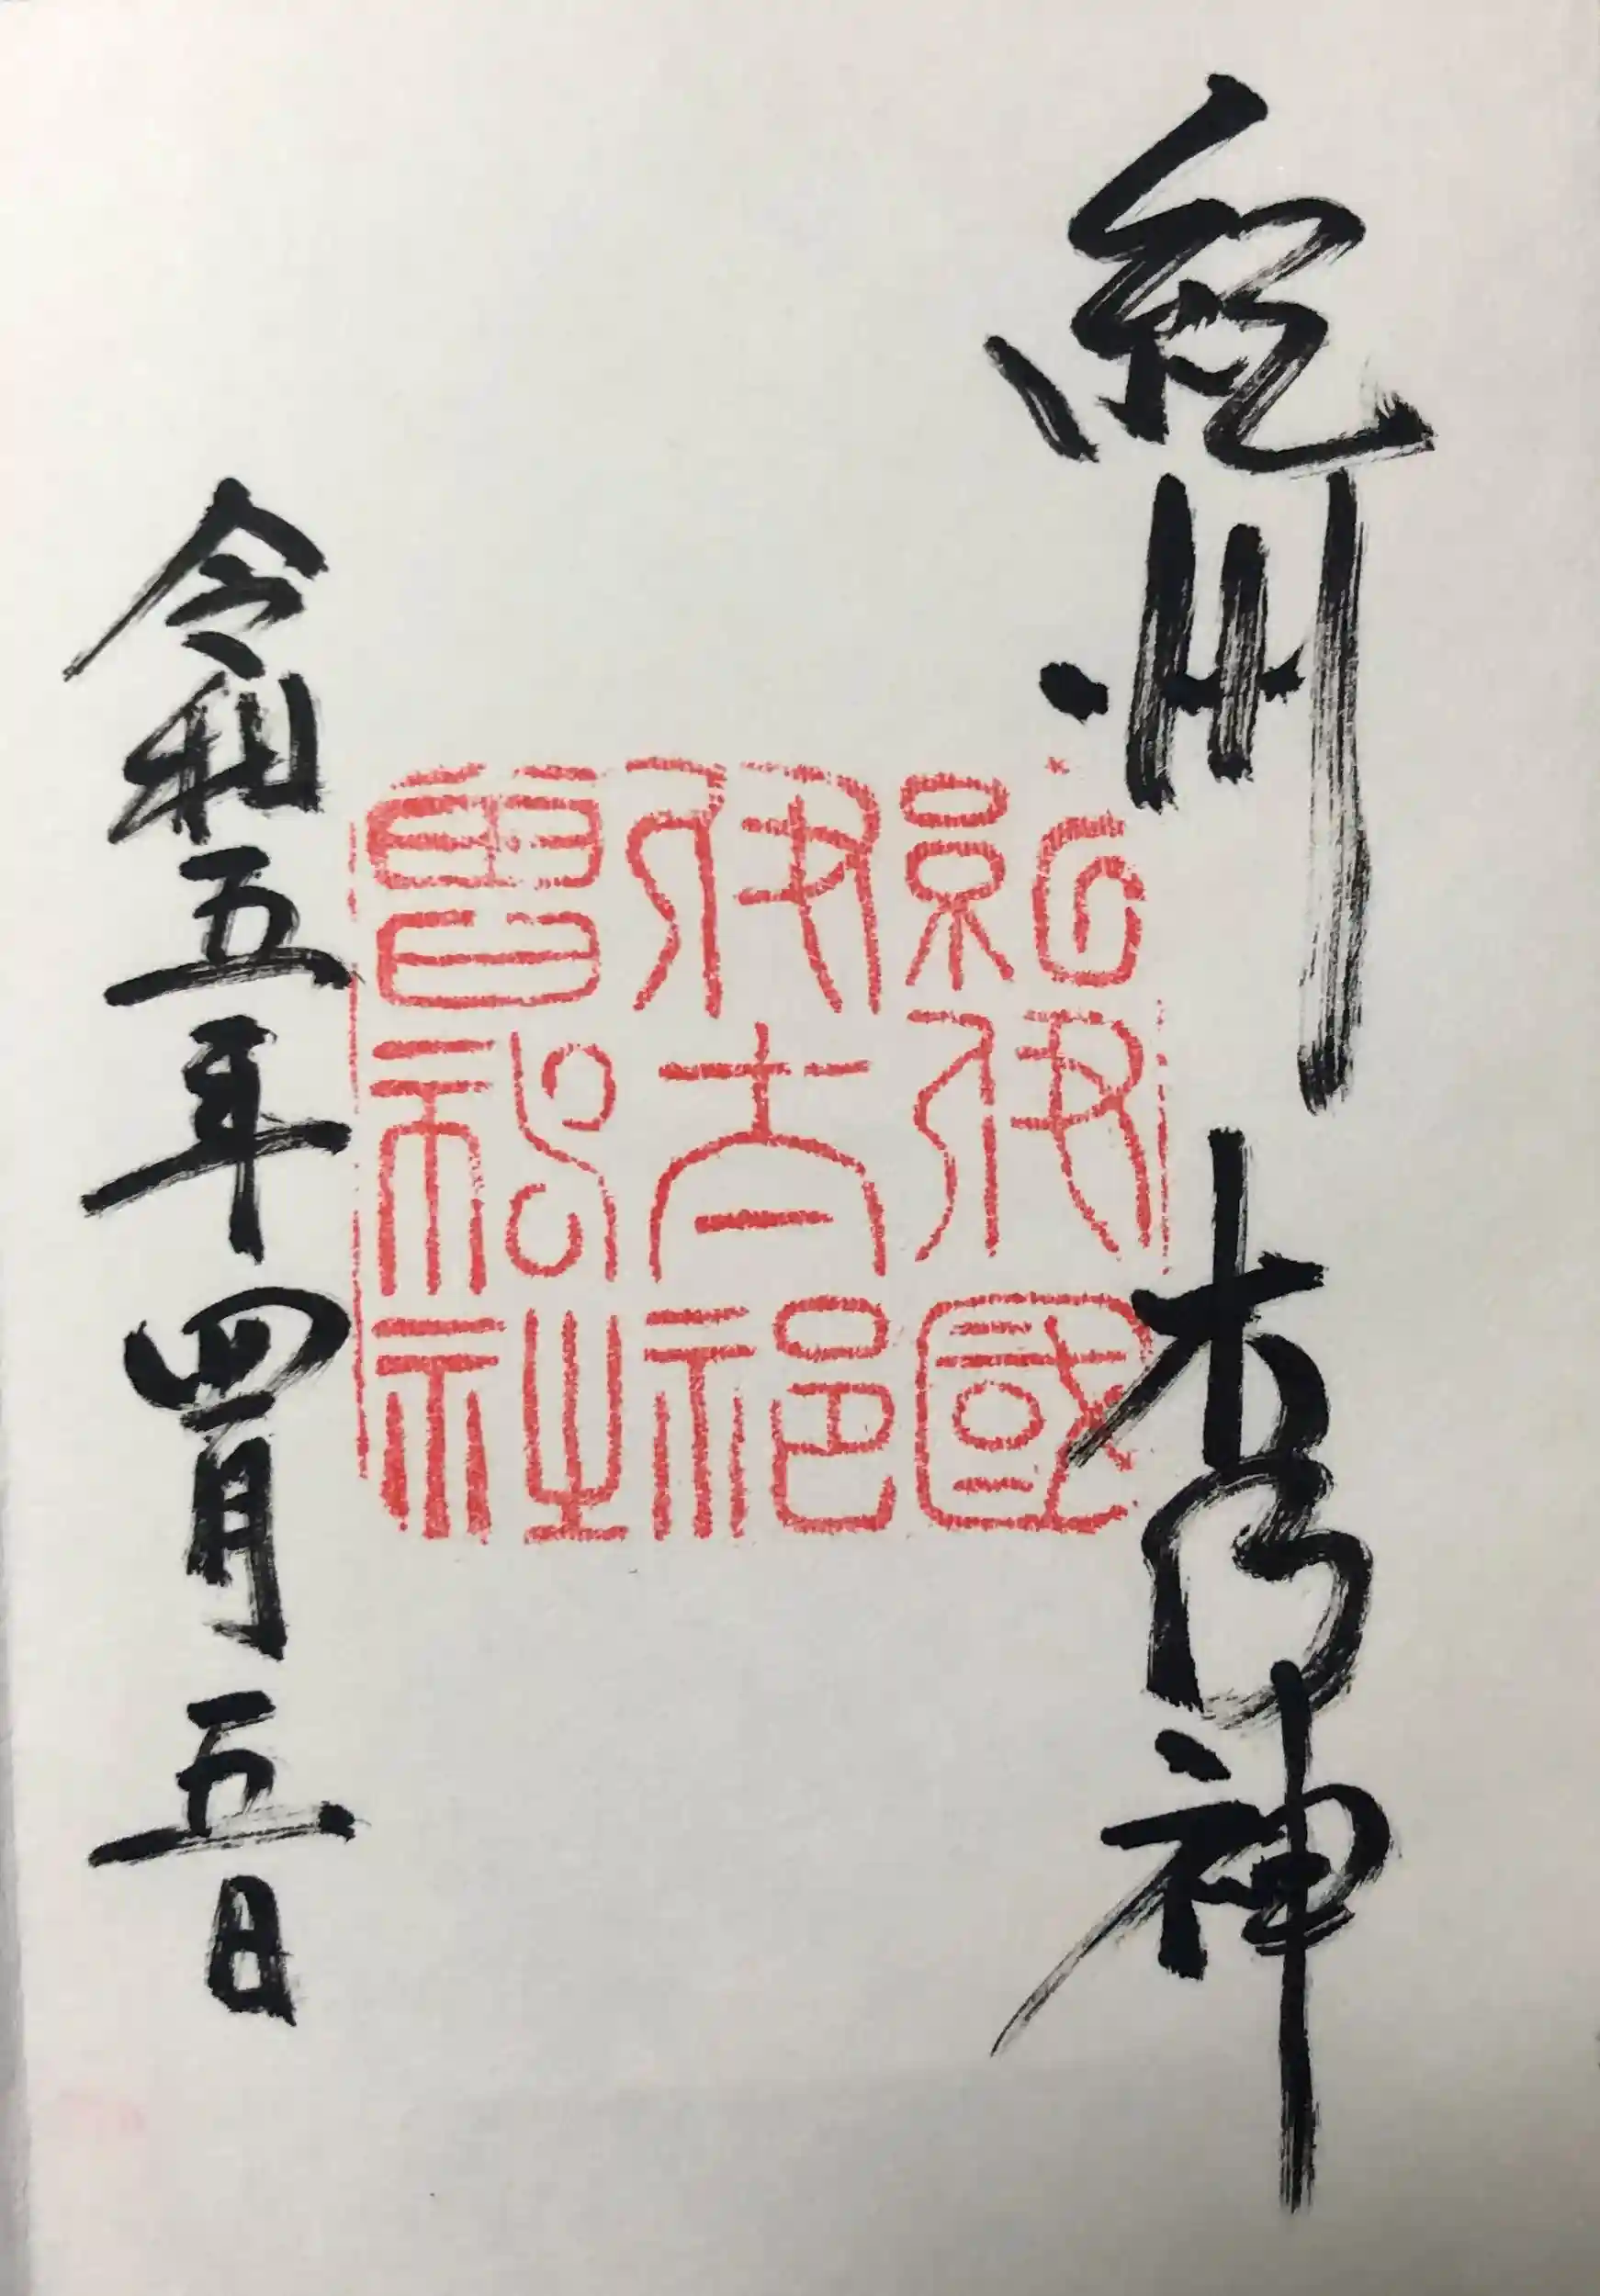 紀州 木の神
紀伊國
伊太祁
曽神社
令和五年四月五日